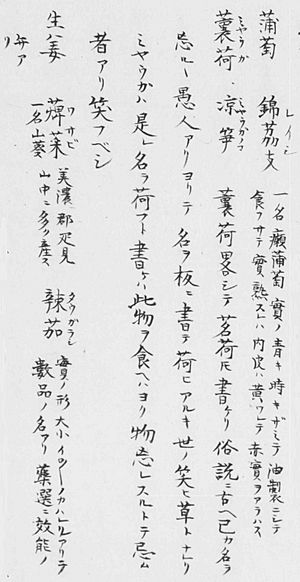 蒲萄 錦茘支 レイシ 一名癩蒲萄 實ノ青キ時キザミテ油製ニシテ
食フサテ實熟スレハ内定ハ黄ワレテ赤實ヲアラハス
蘘荷 ミヤウガ 凉笋 ミヤウガノコ 蘘荷畧シテ茗荷ト書ケリ俗説ニ古ヘ己カ名ヲ
忘ルヽ愚人アリヨリテ名ヲ板ニ書テ荷ヒアルキ世ノ笑ヒ草トナレリ
ミヤウカハ是レ名ヲ荷フト書ケハ此物ヲ食ヘハヨリ物忘レスルトテ忌ム
者アリ笑フベシ
生姜 ワサビ 一名山葵 美濃郡疋見
山中ニ多ク産ス
辣茄 タウガラシ 實ノ形大小イロ〳〵ノカハレルアリテ
數品ノ名アリ 藥選ニ效能ノ